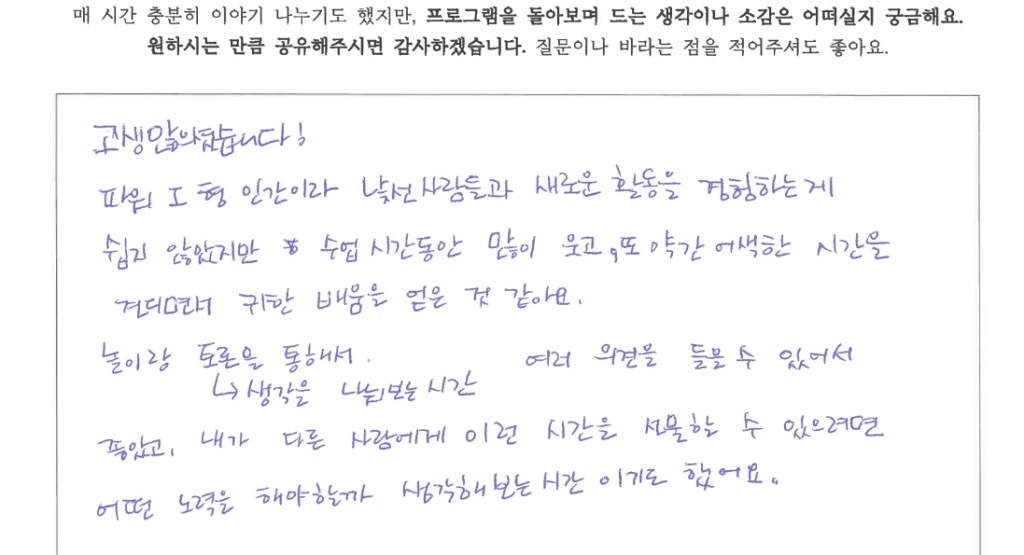 매 시간 충분히 이야기 나누기도 했지만, 프로그램을 돌아보며 드는 생각이나 소감은 어떠실지 궁금해요.
원하시는 만큼 공유해주시면 감사하겠습니다. 질문이나 바라는 점을 적어주셔도 좋아요.
고생많으셨습니다!
파워 I 형 인간이라 낯선사람들과 새로운 활동을 경험하는게
쉽지 않았지만 수업 시간동안 많이 웃고, 또 약간 어색한 시간을
견디면서 귀한 배움을 얻은 것 같아요.
놀이랑 토론을 통해서. 여러 의견을 들을 수 있어서
↳ 생각을 나눠보는 시간
좋았고, 내가 다른 사람에게 이런 시간을 선물할 수 있으려면
어떤 노력을 해야할까 생각해보는 시간 이기도 했어요.